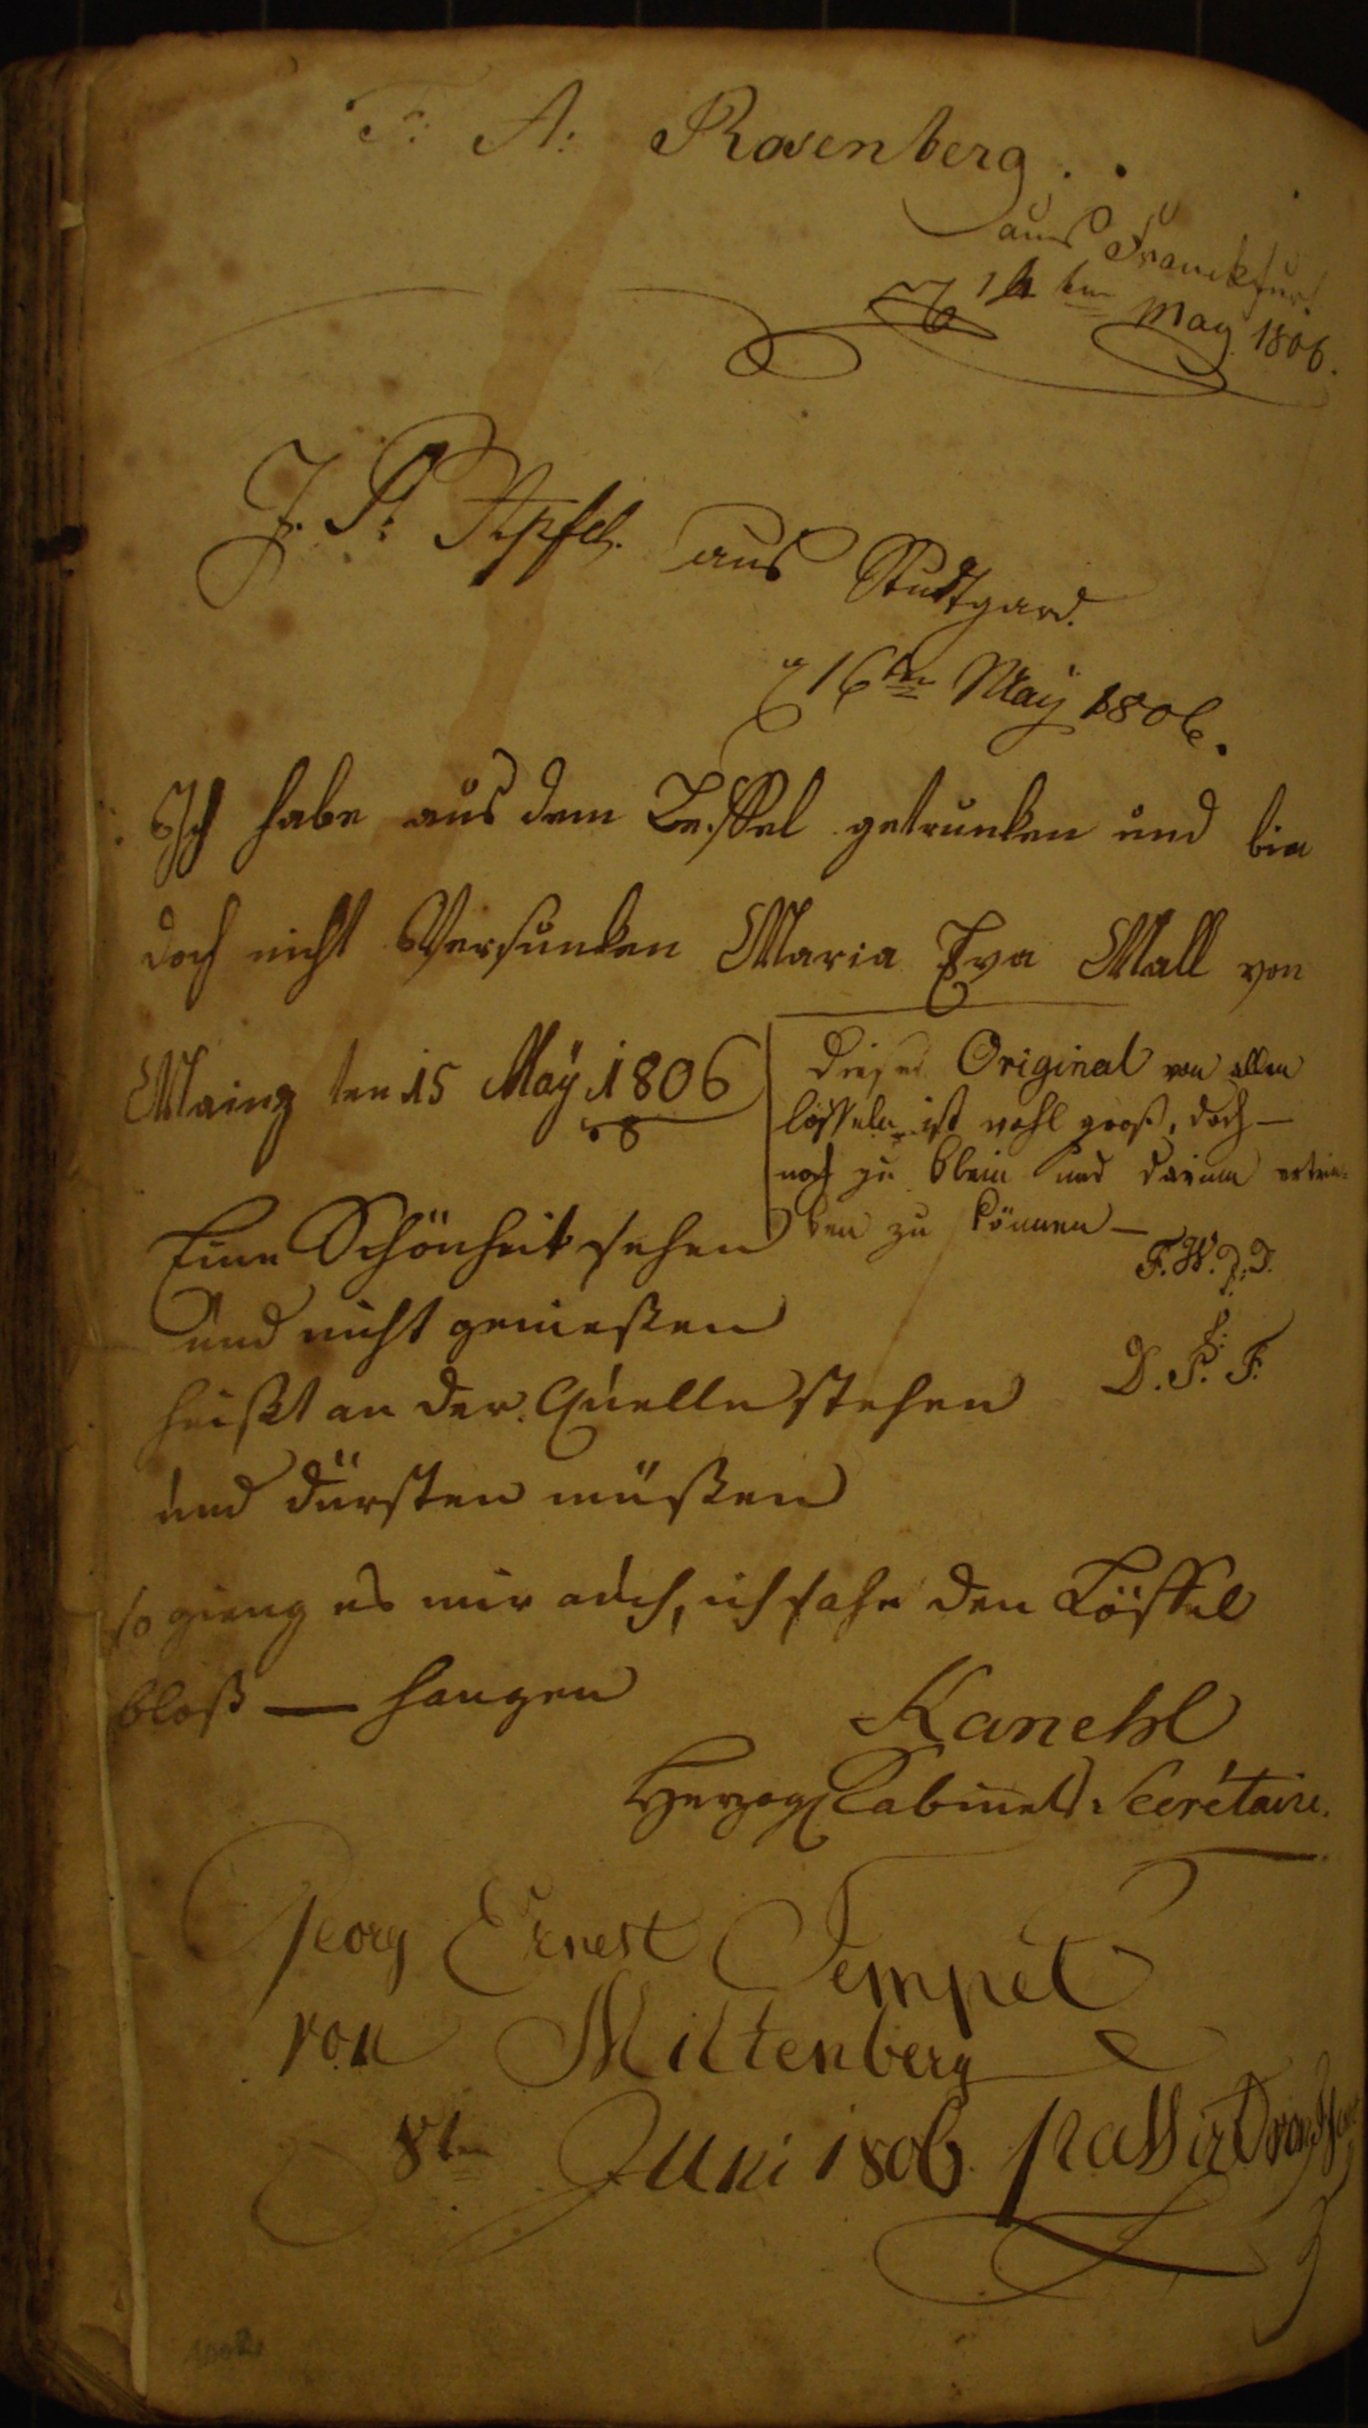 F. A: Rosenberg.
aus Franckfurt
14ten May 1806.
J. P: Apfel. aus Stuttgard.
16ten May 1806.
Ich habe aus dem Leffel getrunken und bin
doch nicht Versunken Maria Eva Mall von
Mainz den 15 May 1806
Dieser Original von allen
löffeln ist wohl groß, doch —
noch zu klein um darinn ertrin-
ken zu können —
F. W. D.
D. P. F.
Eine Schönheit sehen
und nicht genießen
heißt an der Quelle stehen
und dürsten müßen
so gieng es mir auch, ich sahe den Löffel
bloß — hangen
Kanehl
Herzogl Cabinets Secrétaire.
Georg Ernest Tempel
von Miltenberg
8ten Juni 1806. passirt